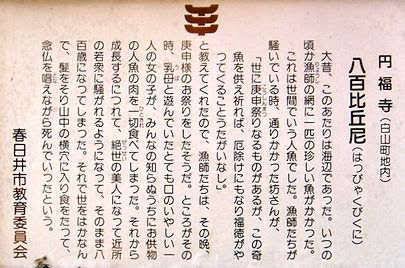 円福寺(白山町地内)
八百比丘尼(はつぴゃくびくに)
大昔、このあたりは海辺であった。いつの
頃か漁師の網に一匹の珍しい魚がかかった。
これは世間でいう人魚でした。漁師たちが
騒いでいる時、通りかかった坊さんが、
「世に庚申祭りなるものがあるが、この奇
魚を供え祈れば、厄除けにもなり福徳がや
ってくることうたがいなし。」
と教えてくれたので、漁師たちは、その晩、
庚申様のお祭りをしたそうだ。ところがその
時、乳母と遊んでいたとても口のいやしい一
人の女の子が、みんなの知らぬうちにお供物
の人魚の肉を一切食べてしまった。それから
成長するにつれて、絶世の美人になって近所
の若衆に騒がれるようになって、そのまま八
百歳になってしまった。それで世をはかなん
で、髪をそり山中の横穴に入り食をたって、
念仏を唱えながら死んでいったという。
春日井市教育委員会